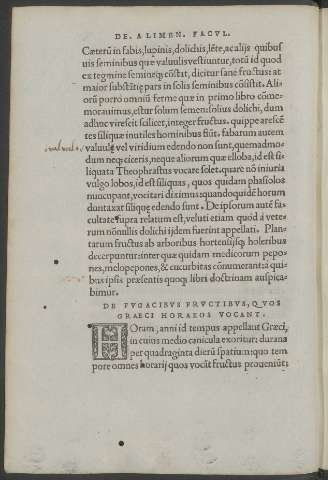 DE. ALIMEN. FACUL.
Cæterũ in fabis, lupinis, dolichis, lẽte, ac alijs quibus
uis seminibus quæ valuulis vestiuntur, totũ id quod
ex tegmine seminiq; cõstat, dicitur sanè fructus: at
maior substãtię pars in solis seminibus cõsistit. Ali-
orũ porro omniũ ferme quæ in primo libro cõme-
morauimus, estur solum semen: solius dolichi, dum
adhuc virescit scilicet, integer fructus. quippe arescẽ
tes siliquæ inutiles hominibus fiũt. fabarum autem
valuulę vel viridium edendo non sunt, quemadmo-
dum neq; ciceris, neque aliorum quæ elloba, id est si-
liquata Theophrastus vocare solet. quare nõ iniuria
vulgo lobos, id est siliquas, quos quidam phasiolos
nuncupant, vocitari diximus: quandoquidẽ horum
dontaxat siliquę edendo sunt. De ipsorum autẽ fa-
cultate supra relatum est, veluti etiam quod à vete-
rum nõnullis dolichi ijdem fuerint appellati. Plan-
tarum fructus ab arboribus hortensijsq; holeribus
decerpuntur: inter quæ quidam medicorum pepo-
nes, melopepones, & cucurbitas cõnumerant: à qui-
bus ipsis præsentis quoq; libri doctrinam auspica-
bimur.
DE FUGACIBUS FRUCTIBUS, QUOS
GRAECI HORAEOS VOCANT.
HOram, anni id tempus appellant Græci,
in cuius medio canicula exoritur: durans
per quadraginta dierũ spatium: quo tem
pore omnes horarij quos vocãt fructus proueniũt: